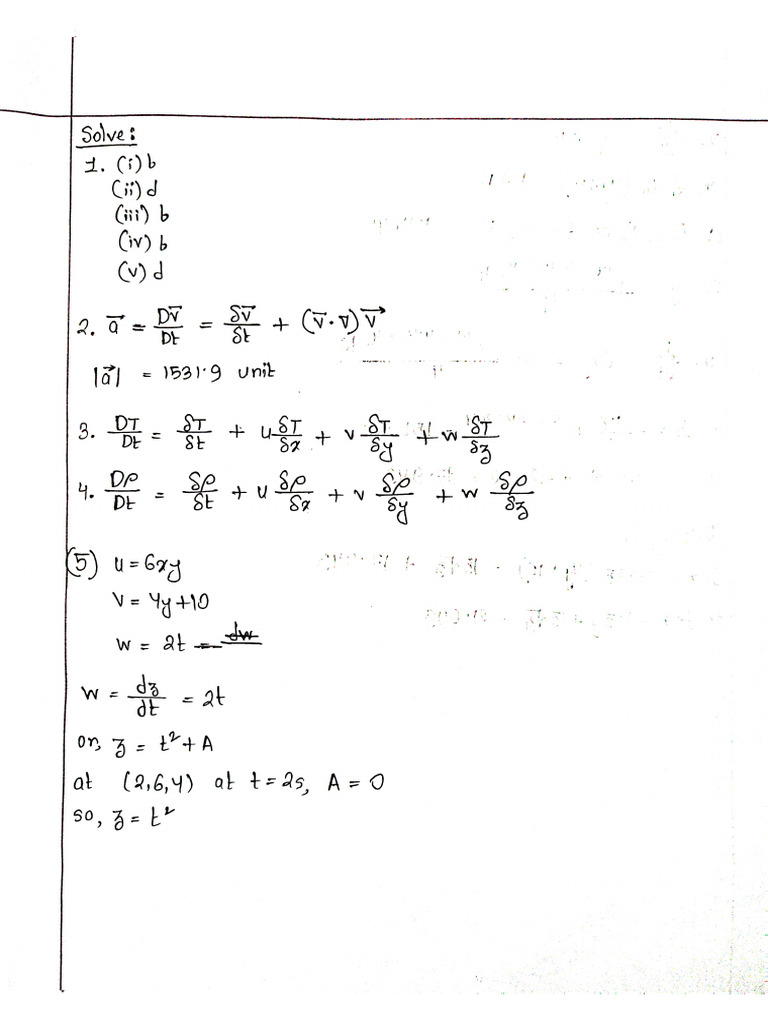 Solve:
1. (i) b
(ii) d
(iii) b
(iv) b
(v) d
2. a⃗ = Dv̄/Dt = δv̄/δt + (v̄·v̄)v⃗
|a⃗| = 1531.9 unit
3. DT/Dt = δT/δt + u δT/δx + v δT/δy + w δT/δz
4. Dρ/Dt = δρ/δt + u δρ/δx + v δρ/δy + w δρ/δz
(5) u = 6xy
v = 4y+10
w = 2t
w = dz/dt = 2t
or, z = t² + A
at (2,6,4) at t = 2s, A = 0
so, z = t²